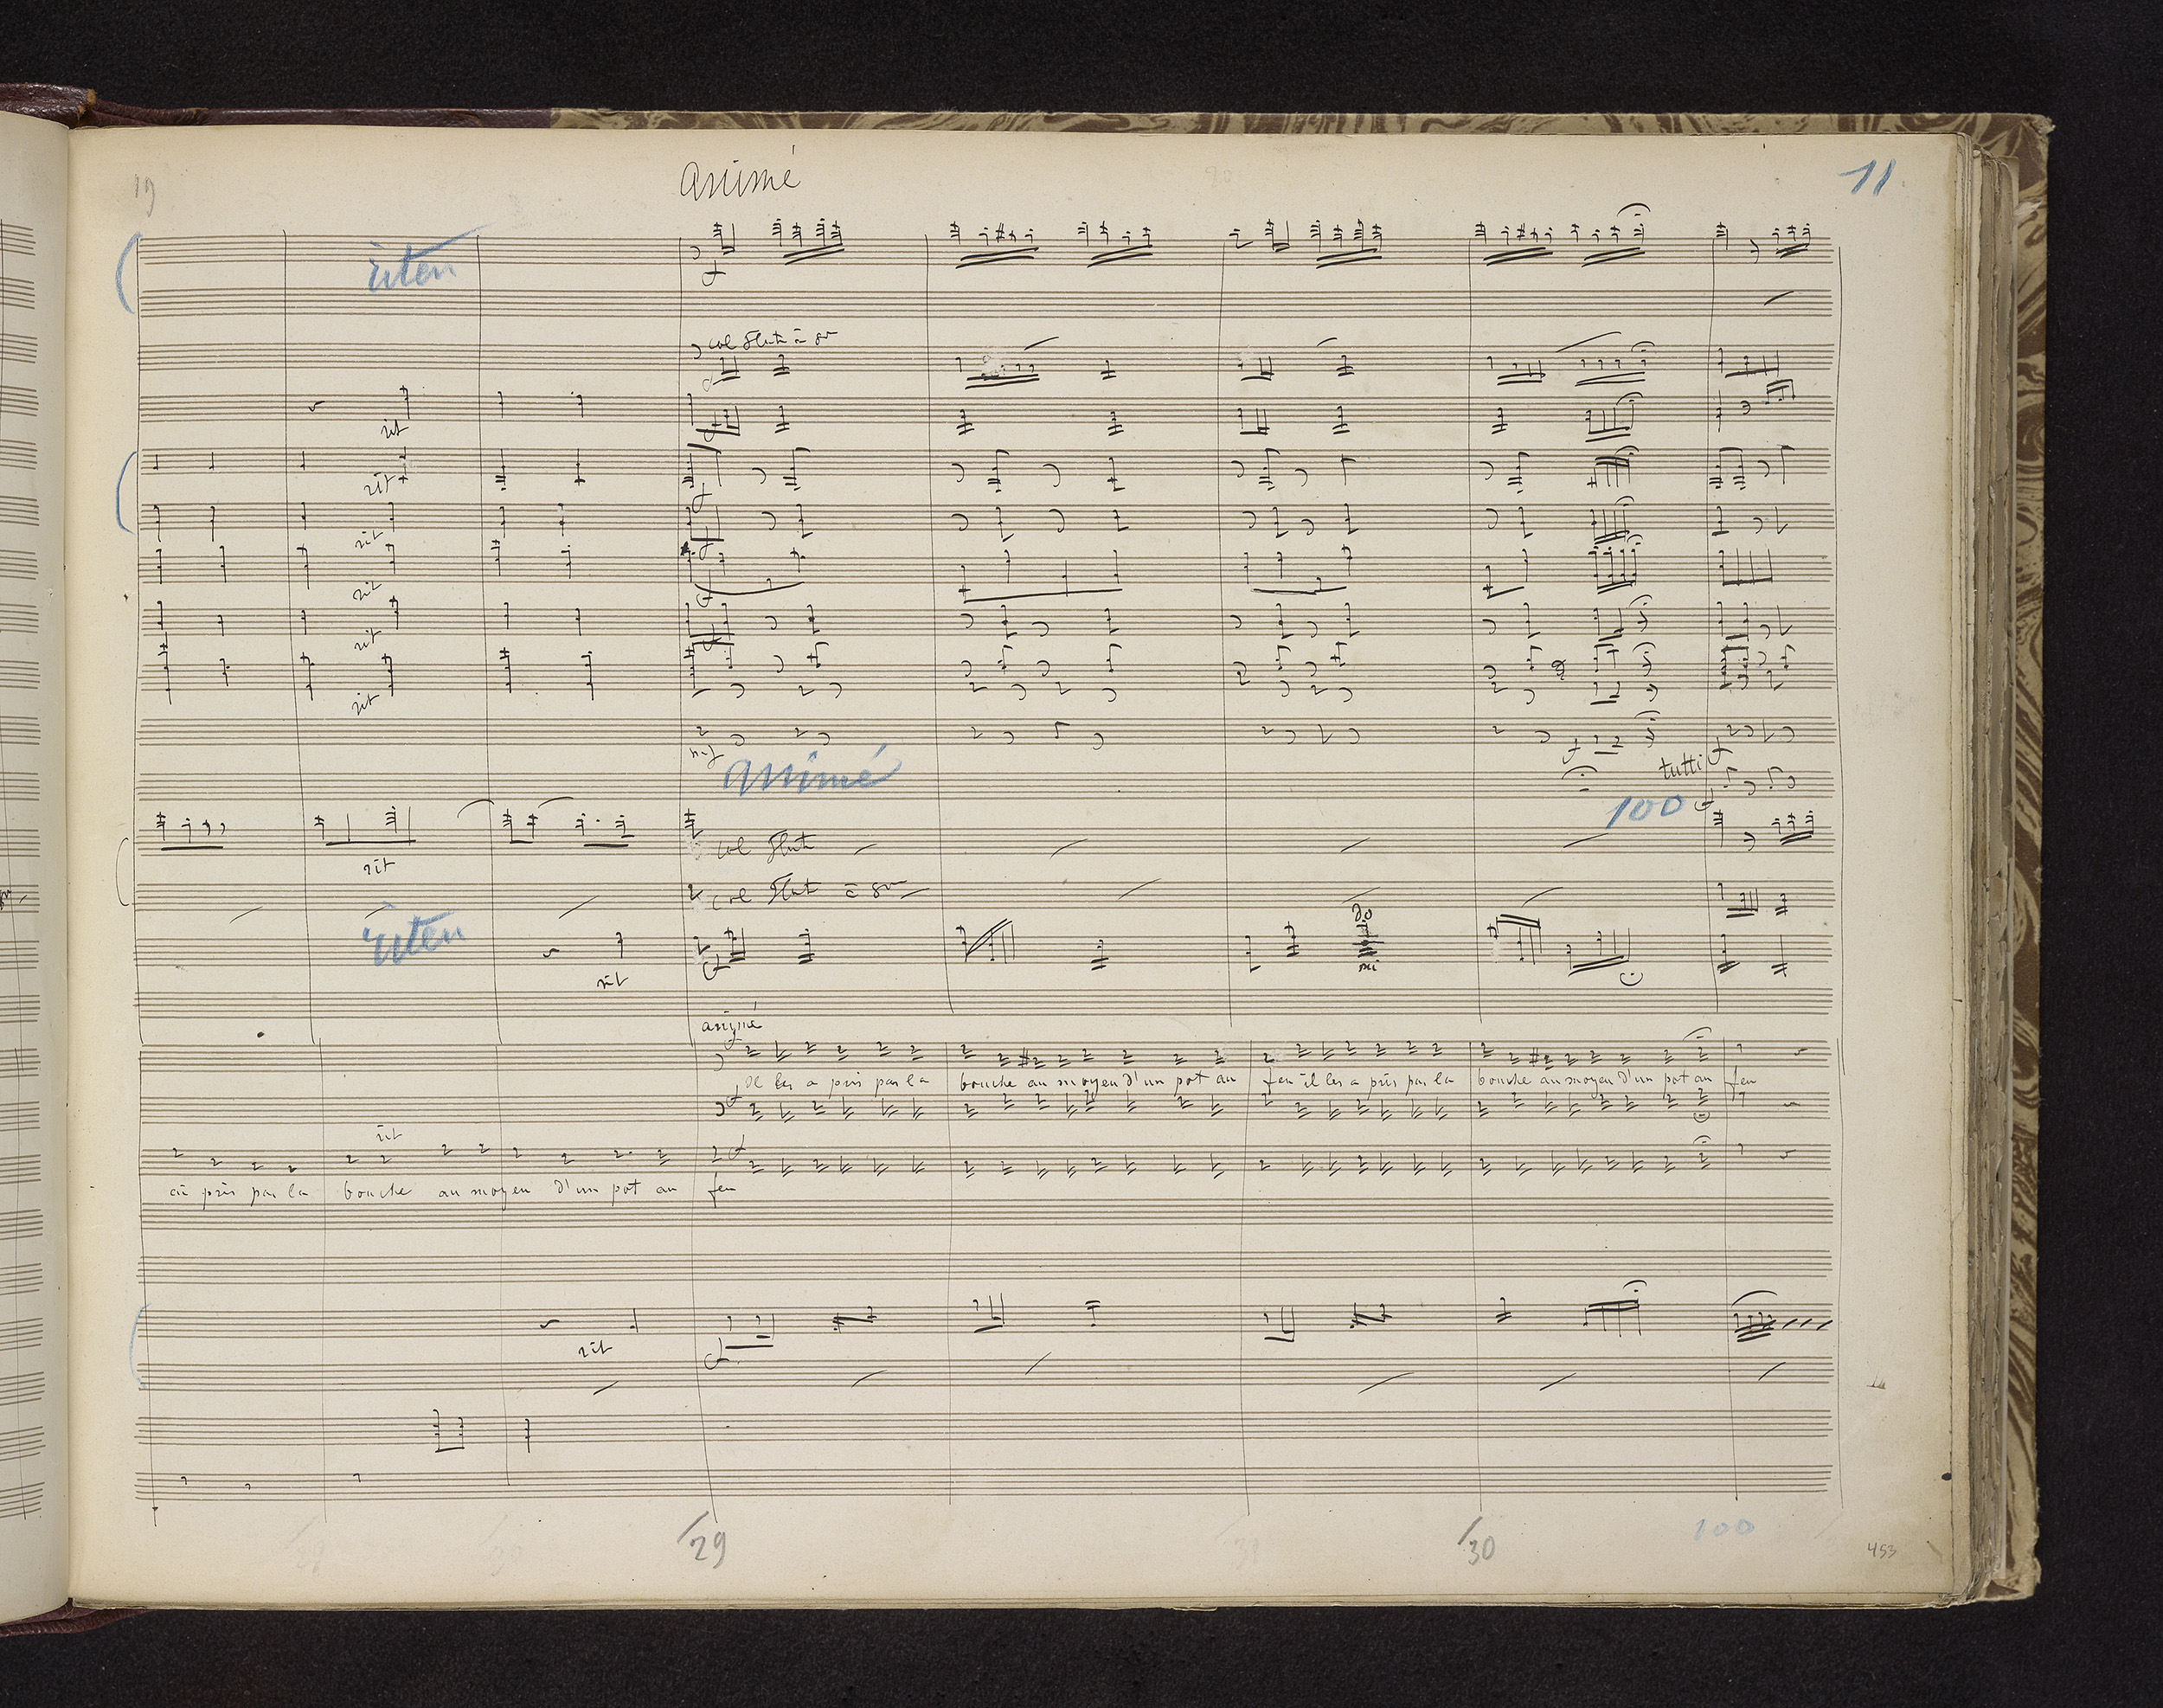 19
animé
20
11
riten
f
col flute à 8va
rit
rit
f
rit
f
rit
f
rit
f
rit
mf
f
f
animé
tutti
100
f
rit
col flute
col flute à 8va
riten
do
mi
rit
f
animé
f
Il les a pris par la bouche au moyen d'un pot au feu il les a pris par la bouche au moyen d'un pot au feu
f
rit
f
a pris par la bouche au moyen d'un pot au feu
rit
f
29
31
30
100
453